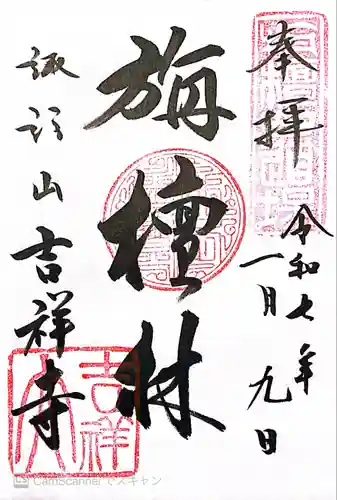 奉拝
令和七年
一月九日
旃檀林
諏訪山吉祥寺
吉祥
CamScannerでスキャン